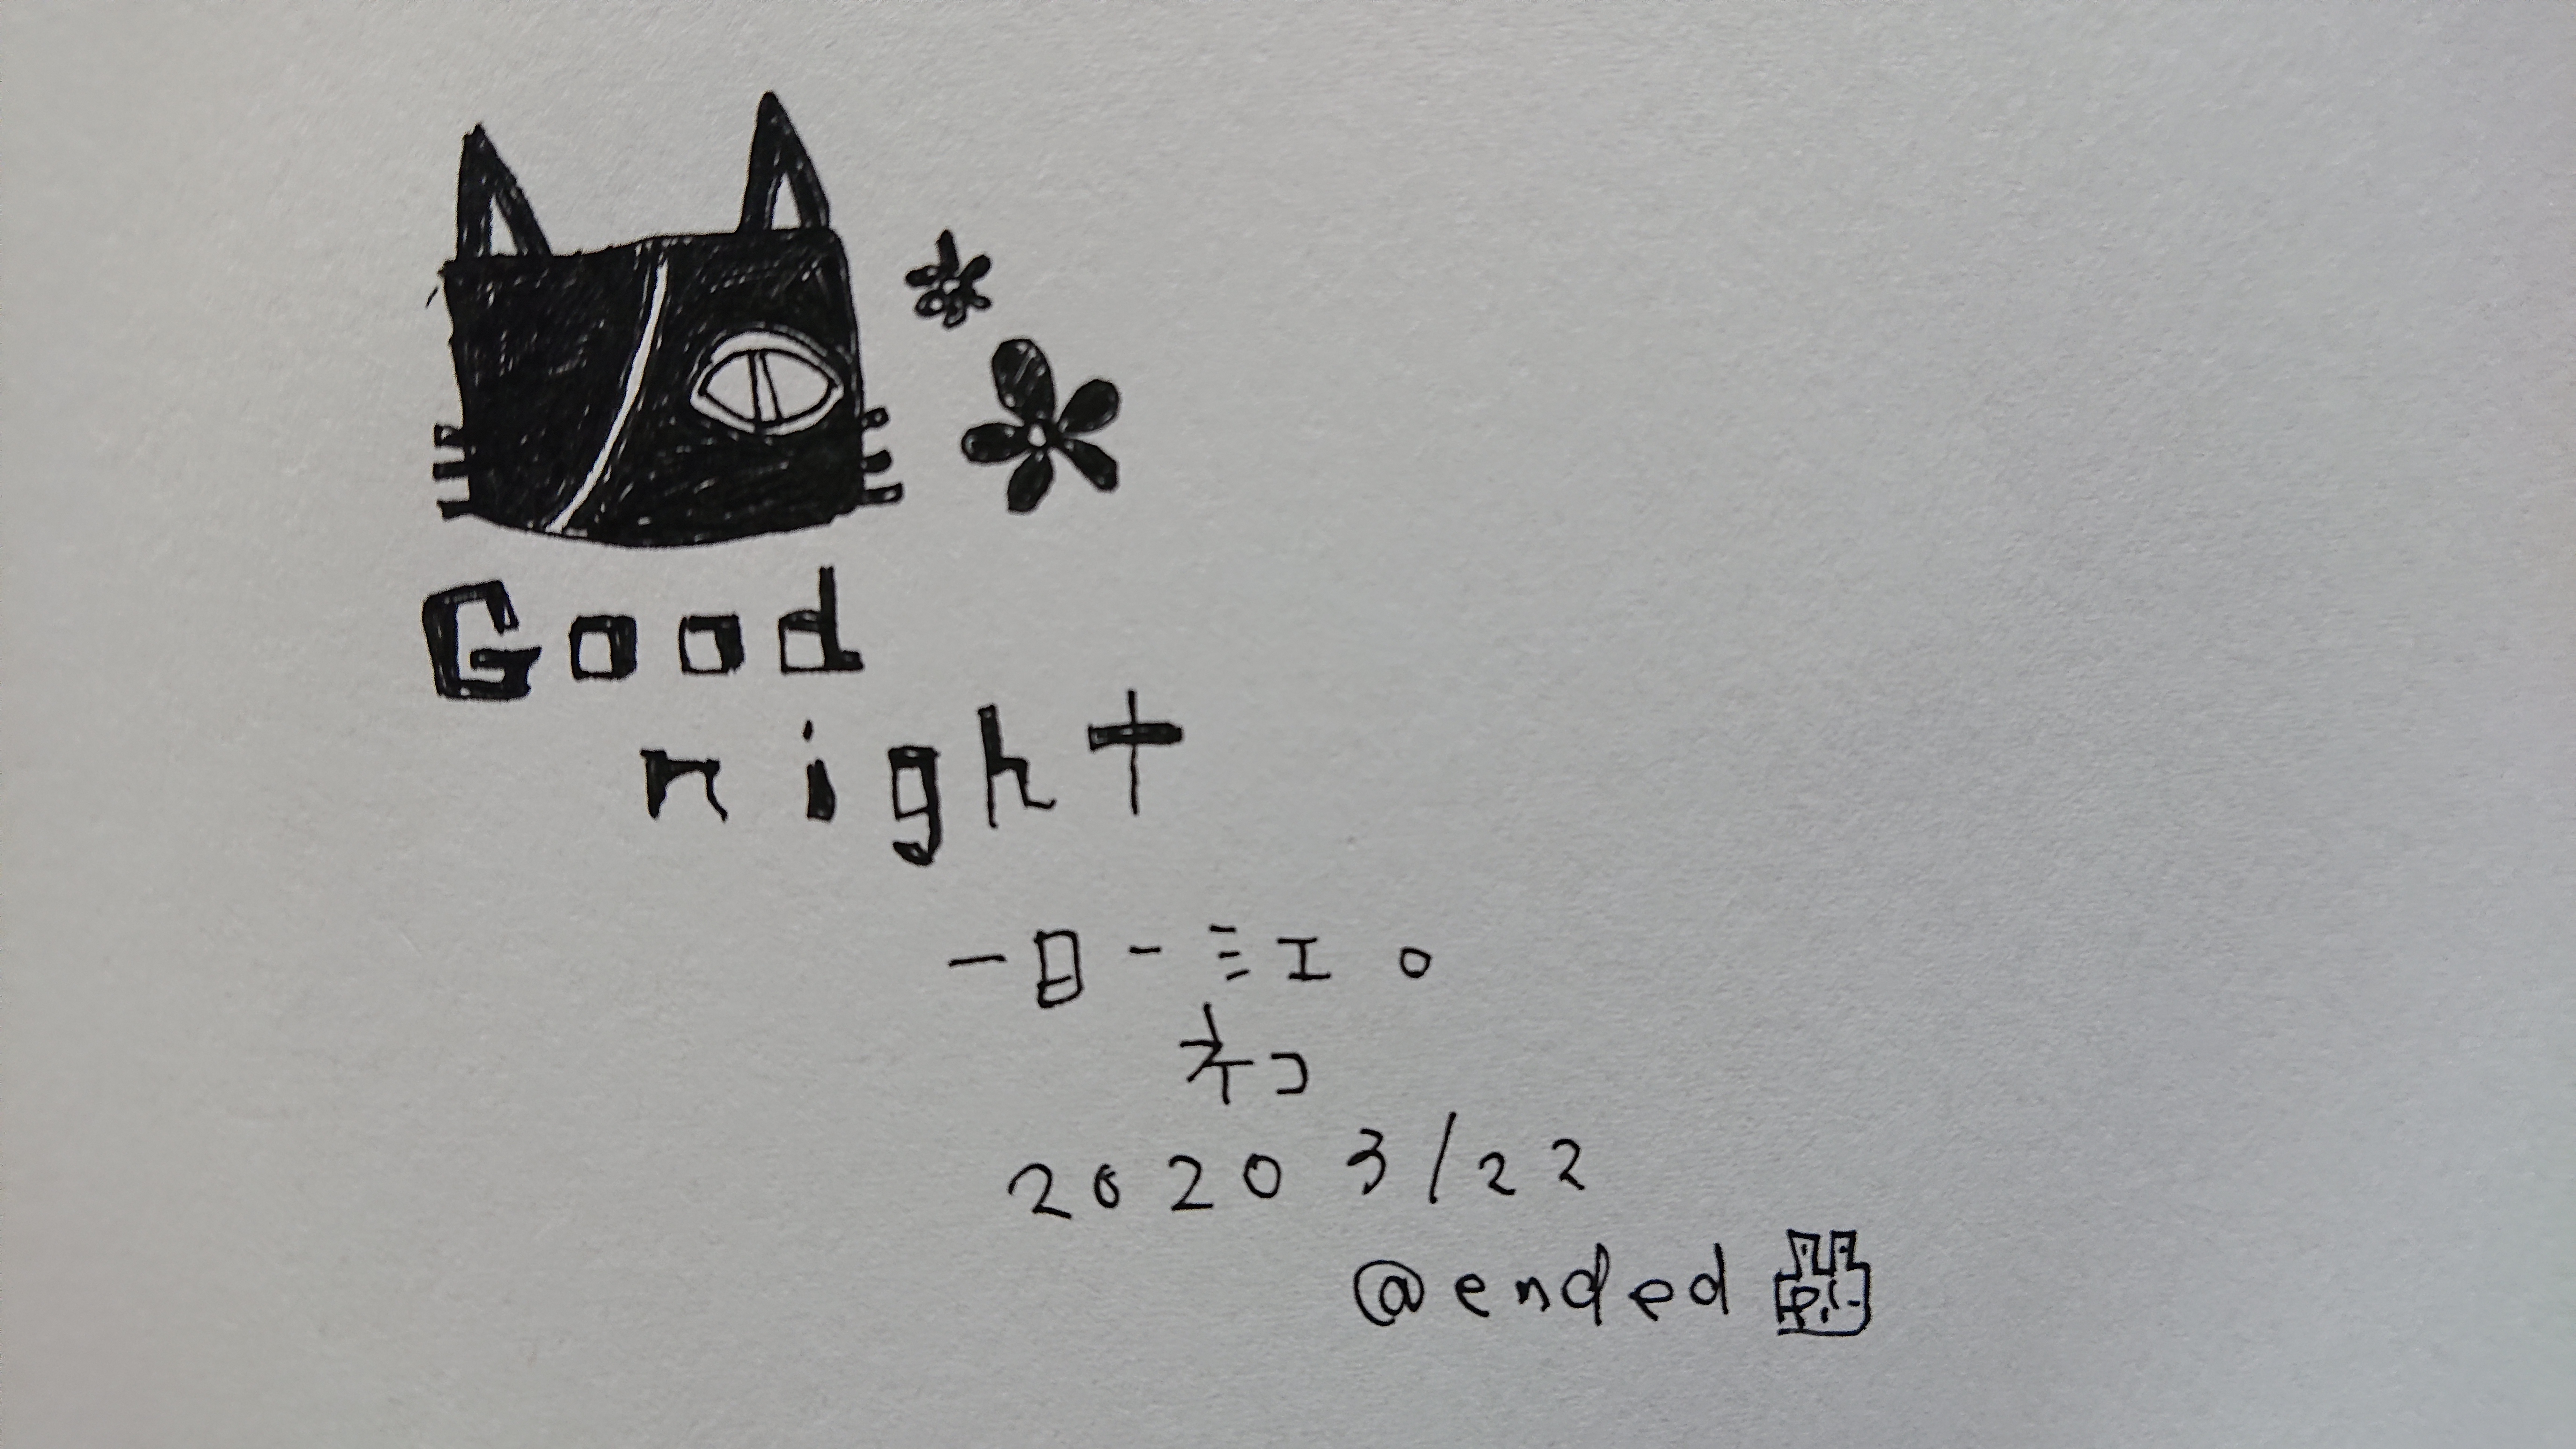 Good
night
一日一ミエ。
ネコ
2020 3/22
@ended